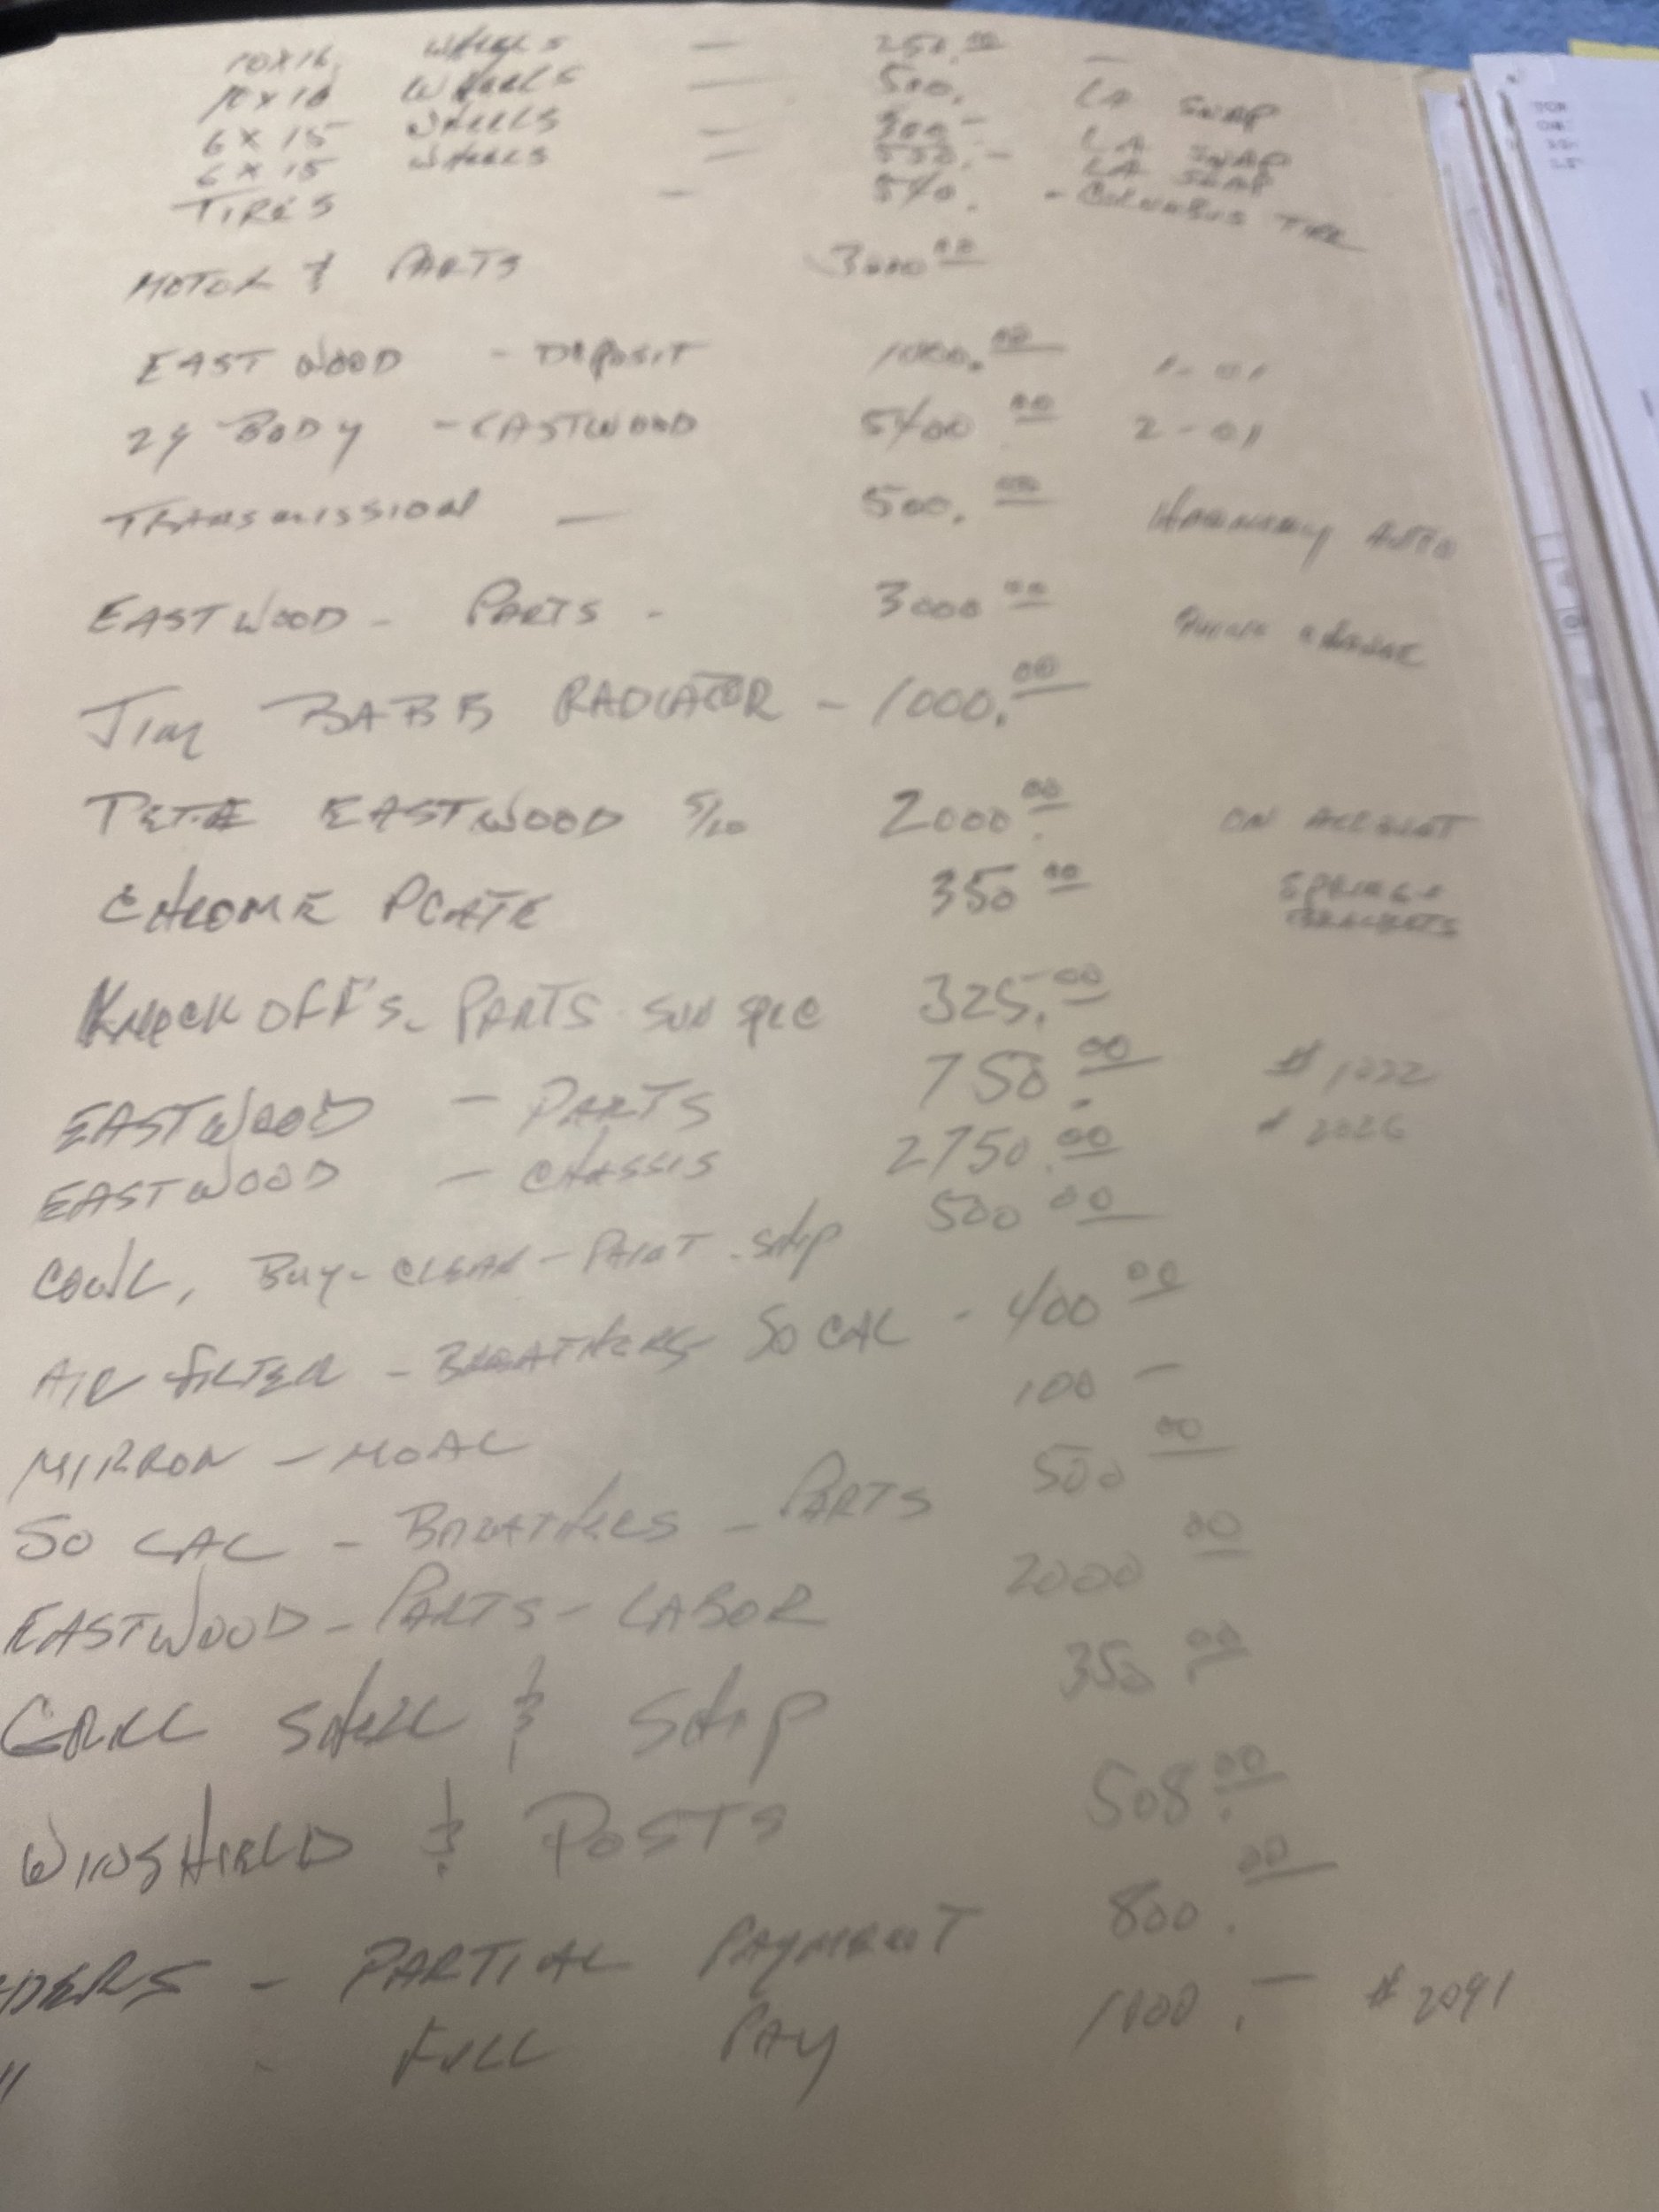 10 X 16 WHEELS — 250.00 —
10 X 16 WHEELS — 500. LA SWAP
6 X 15 WHEELS — 300 — LA SWAP
6 X 15 WHEELS — — LA SWAP
TIRES — 540. - COLUMBUS TIRE
MOTOR & PARTS 3000 00
EASTWOOD - DEPOSIT 1000.00 1-01
29 BODY - EASTWOOD 5400 00 2-01
TRANSMISSION — 500.00 AUTO
EASTWOOD - PARTS - 3000 00 QUICK CHANGE
JIM BABB RADIATOR - 1000.00
PETE EASTWOOD 5/20 2000.00 ON ACCOUNT
CHROME PLATE 350 00 SPRING &
BRACKETS
KNOCK OFF'S - PARTS - SUN SPEC 325.00
EASTWOOD - PARTS 750.00 # 1222
EASTWOOD - CHASSIS 2750.00 # 2026
COWL, BUY - CLEAN - PAINT - SHIP 500 00
AIR FILTER - BREATHERS SO CAL - 400 00
MIRROR - MOAL 100 —
SO CAL - BREATHERS - PARTS 500 00
EASTWOOD - PARTS - LABOR 2000 00
GRILL SHELL & SHIP 350 00
WINSHIELD & POSTS 508.00
DERS - PARTIAL PAYMENT 800.00
" - FULL PAY 1100.— # 2091